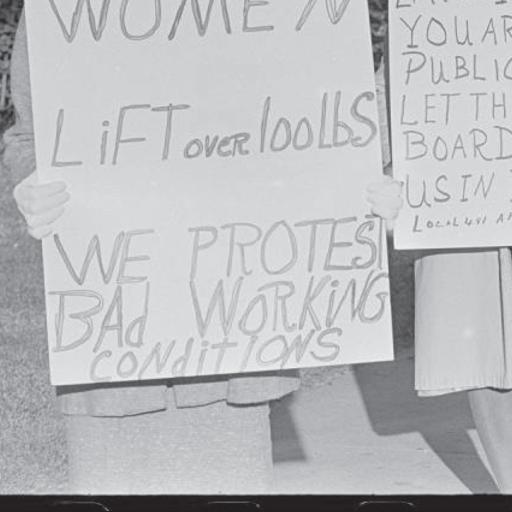 WOMEN
LiFT over 100lbs
WE PROTEST
BAd WORKiNG
CONditIONS
YOU AR
PUBLIC
LET TH
BOARD
US IN
LOCAL 451 AF